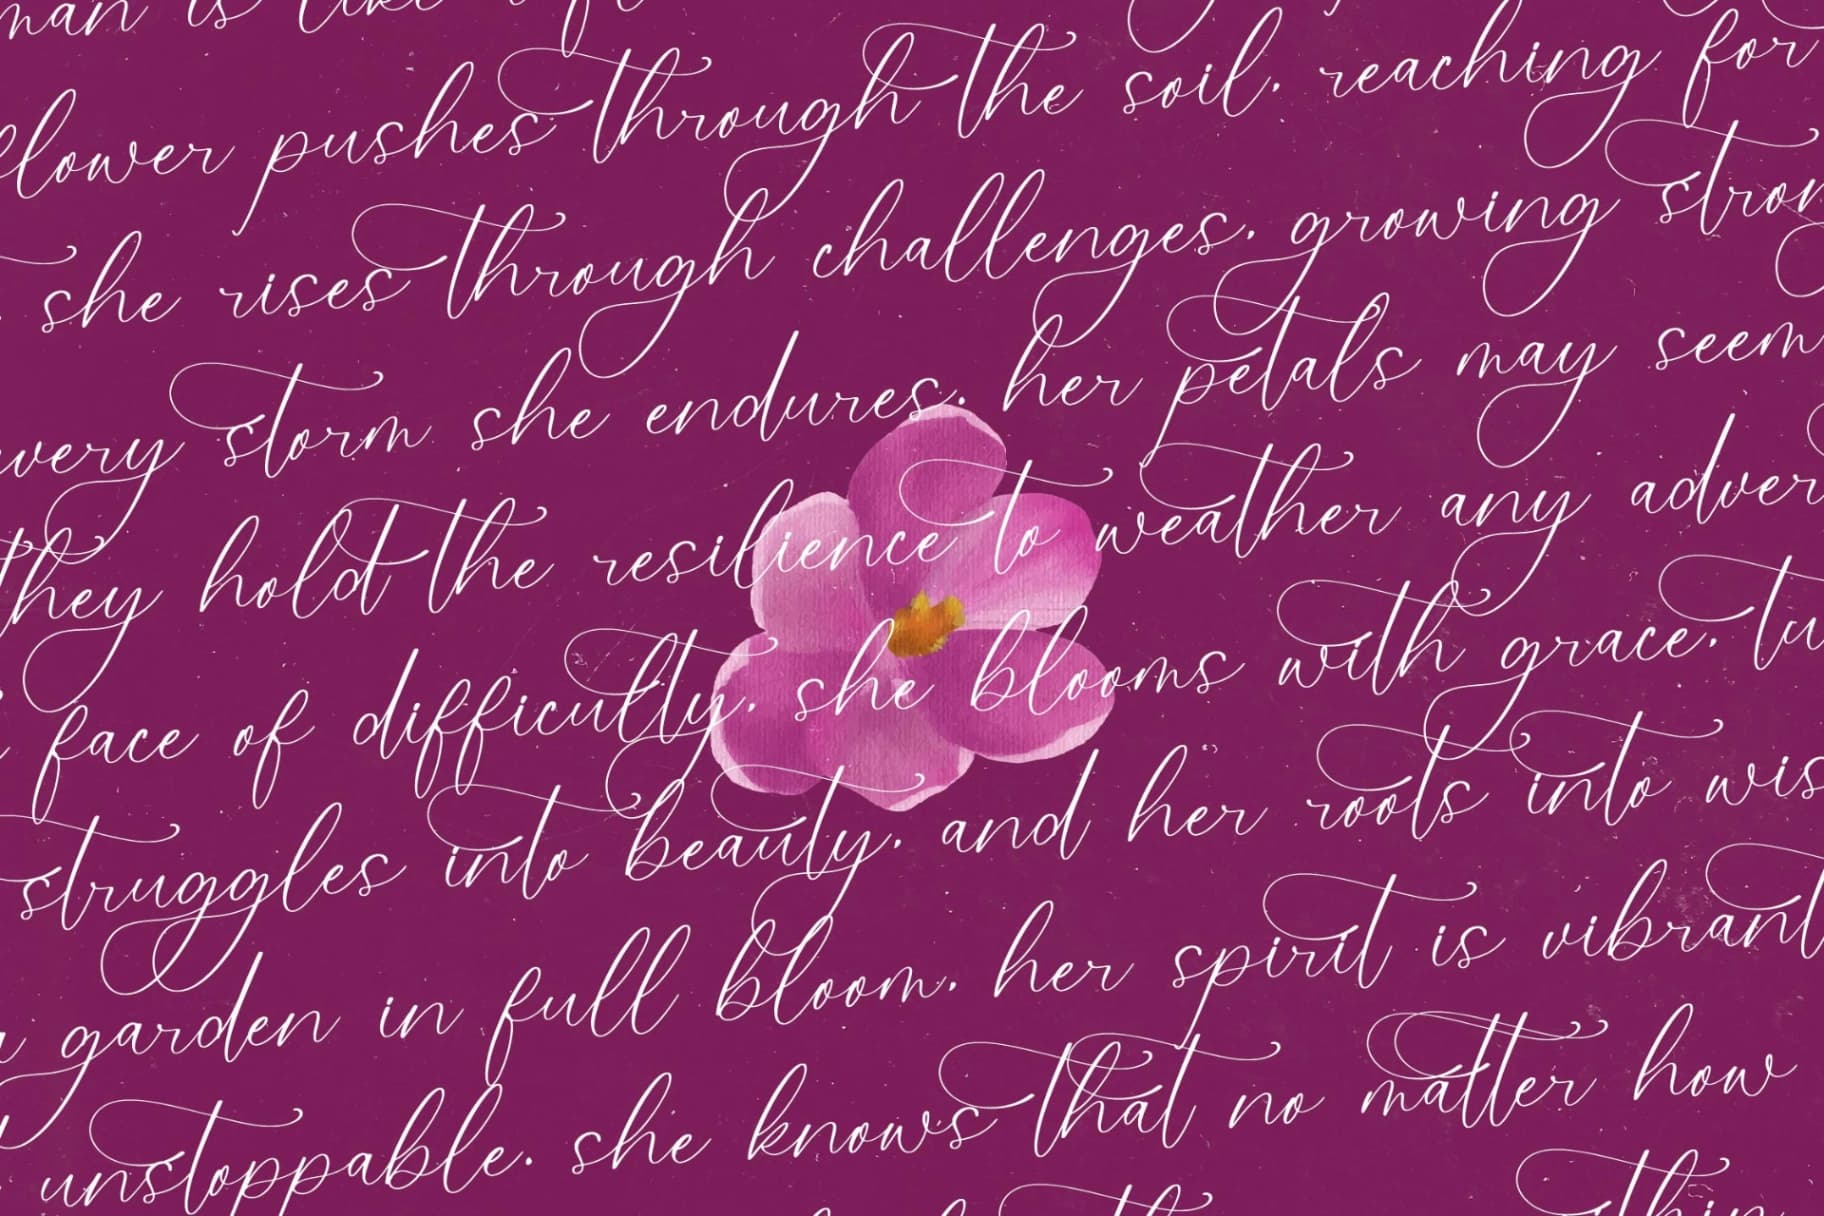 man is like a fl
flower pushes through the soil, reaching for
, she rises through challenges, growing stron
every storm she endures. her petals may seem
they hold the resilience to weather any adver
face of difficulty, she blooms with grace, tu
struggles into beauty, and her roots into wis
a garden in full bloom, her spirit is vibrant
unstoppable. she knows that no matter how
thin